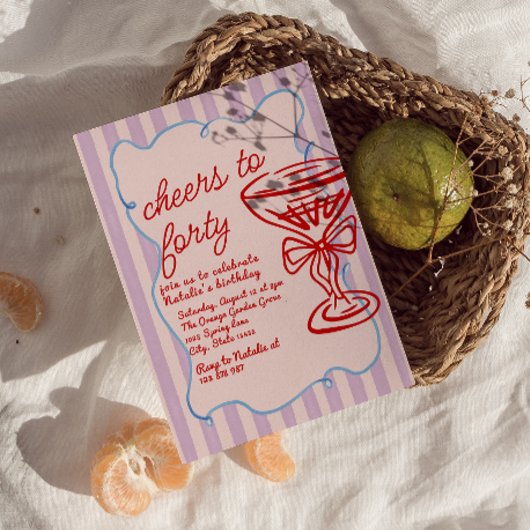 cheers to
forty
join us to celebrate
Natalie's birthday
Saturday, August 12 at 2pm
The Orange Garden Grove
1025 Spring Lane
City, State 12455
Rsvp to Natalie at
123 878 987